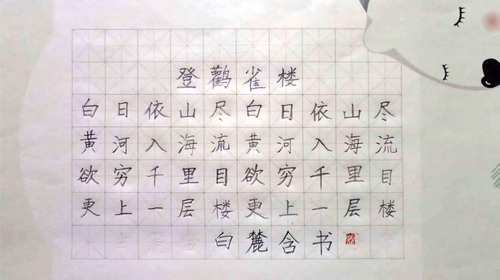 登鹳雀楼
白日依山尽白日依山尽
黄河入海流黄河入海流
欲穷千里目欲穷千里目
更上一层楼更上一层楼
白麓含书